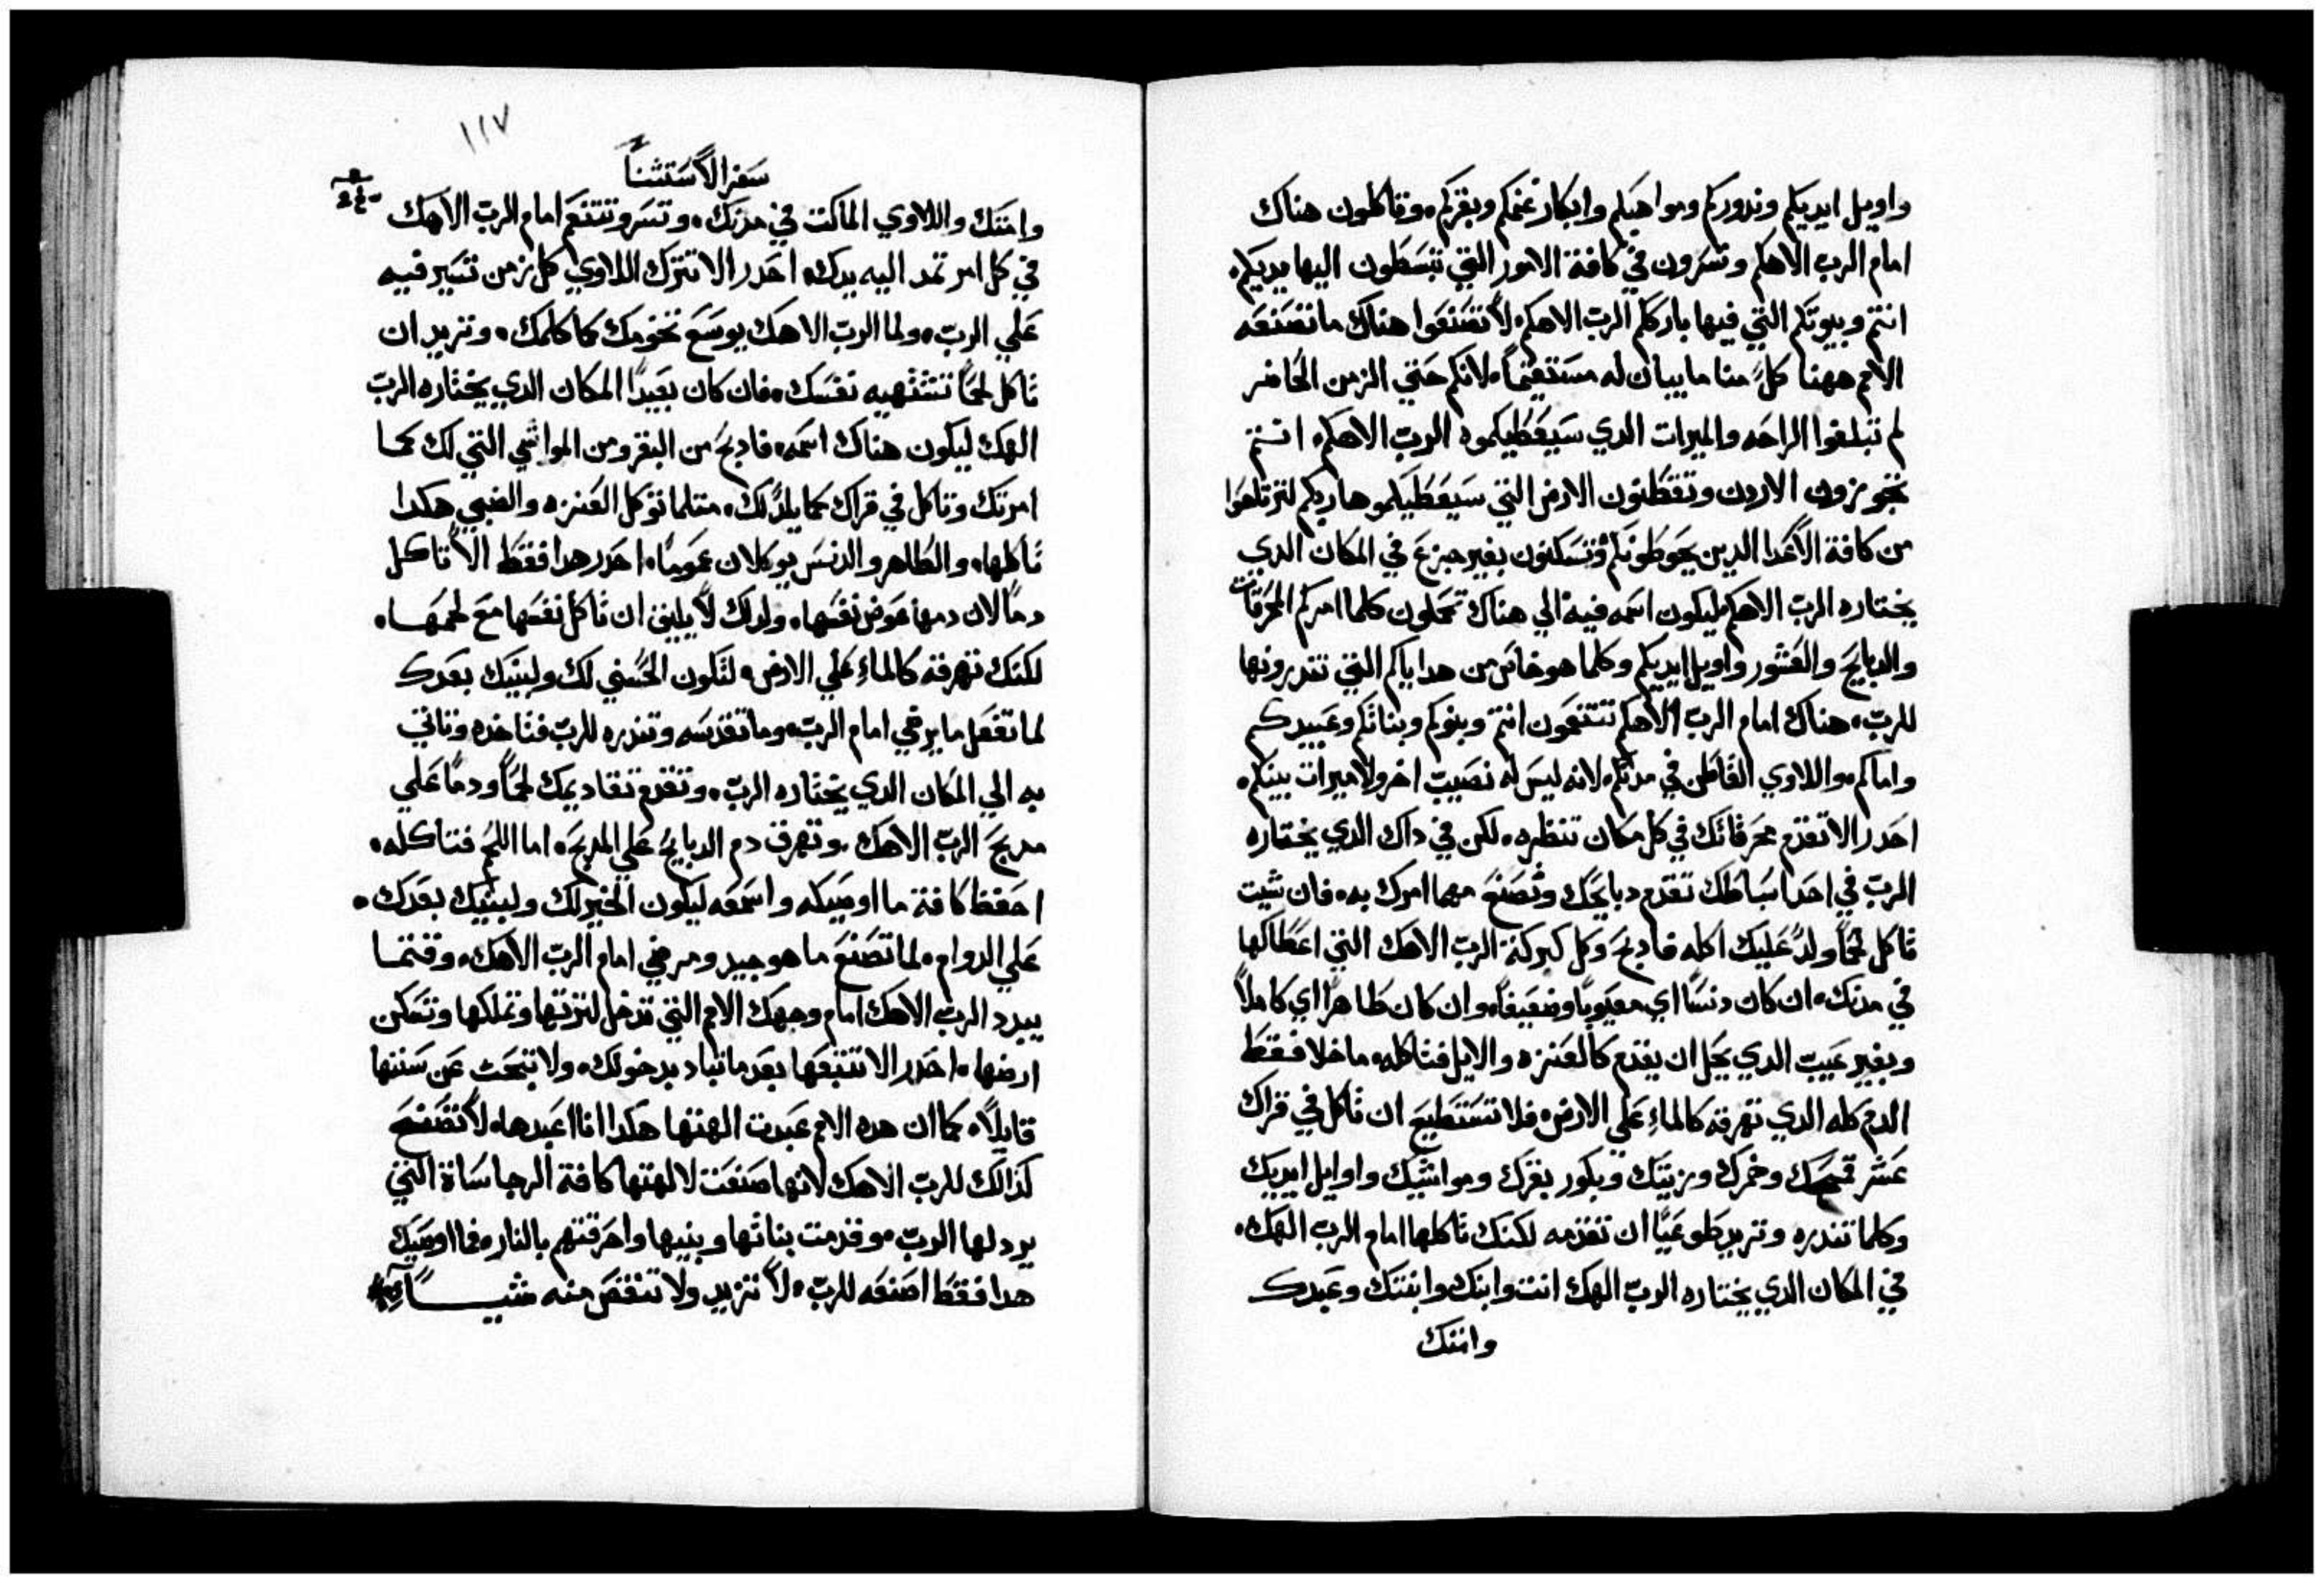 واويل ايديكم وندوركم ومواهبكم وابكار غنمكم وبقركم. وتاكلون هناك
امام الرب الاهكم وتسرون في كافة الامور التي تبسطون اليها يديكم.
انتم وبيوتكم التي فيها بارككم الرب الاهكم. لا تصنعوا هناك ما نصنعه
الامم ههنا كلٌ منا ما يبان له مستقيماً. لانكم حتي الزمن الحاضر
لم تبلغوا الراحه والميرات الدي سيعطيكموه الرب الاهكم. انتم
تجوزون الاردن وتقطنون الارض التي سيعطيكموها ربكم لترتاحوا
من كافة الاعدا الدين يحوطونكم وتسكنون بغير جزع في المكان الدي
يختاره الرب الاهكم ليكون اسمه فيه. الي هناك تحملون كلما امركم المحرقات
والدبايح والعشور واويل ايديكم وكلما هو خاص من هداياكم التي تندرونها
للرب. هناك امام الرب الاهكم تتنعمون انتم وبنوكم وبناتكم وعبيدكم
واماكم. واللاوي القاطن في مدنكم. لانه ليس له نصيب اخر ولا ميرات بينكم.
احدر الا تقدم محرقاتك في كل مكان تنظره. لكن في داك الدي يختاره
الرب في احد اسباطك تقدم دبايحك وتصنع مهما امرك به. فان شيت
تاكل لحماً ولدّ عليك اكله فادبح وكل كبركة الرب الاهك التي اعطاكها
في مدنك. ان كان دنساً اي معيوباً وضعيفاً. وان كان طاهراً اي كاملاً
وبغير عيب الدي يحل ان يقدم كالعنزه والايل فتاكله. ما خلا فقط
الدم كله الدي تهرقه كالماءِ علي الارض. فلا تستطيع ان تاكل في قراك
عشر قمحك وخمرك وزيتك وبكور بقرك ومواشيك واوايل ايديك
وكلما تندره وتريد طوعياً ان تقدمه لكنك تاكلها امام الرب الهك.
في المكان الدي يختاره الرب الهك انت وابنك وابنتك وعبدك
وامتك
١١٧
سفر الاستثنا
وامتك واللاوي الماكت في مدنك. وتسر وتتنعم امام الرب الاهك
في كل امر تمد اليه يدك. احدر الا تترك اللاوي كل زمن تسير فيه
علي الرب. ولما الرب الاهك يوسع تخومك كما كلمك. وتريد ان
تاكل لحماً تشتهيه نفسك. فان كان بعيداً المكان الدي يختاره الرب
الهك ليكون هناك اسمه. فادبح من البقر ومن المواشي التي لك كما
امرتك وتاكل في قراك كما يلدّ لك. متلما توكل العنزه والضبي هكدا
تاكلها. والطاهر والدنس يوكلان عموماً. احدر هدا فقط الا تاكل
دماً لان دمها عوض نفسها. ولدلك لا يليق ان تاكل نفسها مع لحمها.
لكنك تهرقه كالماءِ علي الارض. لتكون الحسني لك ولبنيك بعدك
لما تفعل ما يرضي امام الرب. وما تقدسه وتندره للرب فتاخده وتاتي
به الي المكان الدي يختاره الرب. وتقدم تقاديمك لحماً ودماً علي
مدبح الرب الاهك. وتهرق دم الدبايح علي المدبح. اما اللحم فتاكله.
احفظ كافة ما اوصيكه واسمعه ليكون الخير لك ولبنيك بعدك.
علي الدوام. لما تصنع ما هو جيد ومرضي امام الرب الاهك. وقتما
يبدد الرب الاهك امام وجهك الامم التي تدخل لترتها وتملكها وتسكن
ارضها. احدر الا تتبعها بعد ما تباد بدخولك. ولا تبحت عن سننها
قايلاً. كما ان هده الامم عبدت الهتها هكدا انا اعبدها. لا تصنع
كذالك للرب الاهك لانها صنعت لالهتها كافة الرجاساة التي
يردلها الرب. وقدمت بناتها وبنيها واحرقتهم بالنار. فما اوصيك
هدا فقط اصنعه للرب. لا تزيد ولا تنقص منه شيـــاً